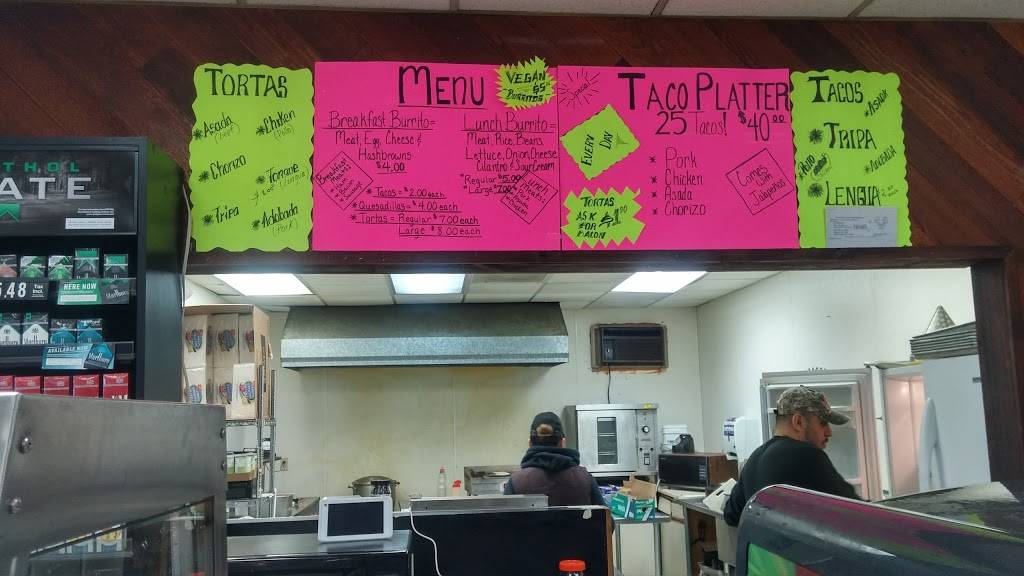 TORTAS
Asada
(beef)
Chicken
(Pollo)
Chorizo
Tongue
(Lengua)
Tripa
Adobada
(Pork)
MENU
VEGAN
$5
BURRITOS
Breakfast Burrito=
Meat, Egg, Cheese &
Hashbrowns
$4.00
Lunch Burrito=
Meat, Rice, Beans,
Lettuce, Onion, Cheese
Cilantro & Sour Cream
*Regular $5.00
*Large
Breakfast
*Tacos = $2.00 each
*Quesadillas = $4.00 each
*Tortas = Regular $7.00 each
Large $8.00 each
Special
TACO PLATTER
25 Tacos! $40.00
EVERY
DAY
* Pork
* Chicken
* Asada
* Chorizo
Comes
with
Jalapeños
TORTAS
ASK
FOR
BACON
TACOS
*ASADA
*TRIPA
*LENGUA
THOL
ATE
5.48
Tax
Incl.
HERE NOW
Marlboro
AVAILABLE NOW
Marlboro